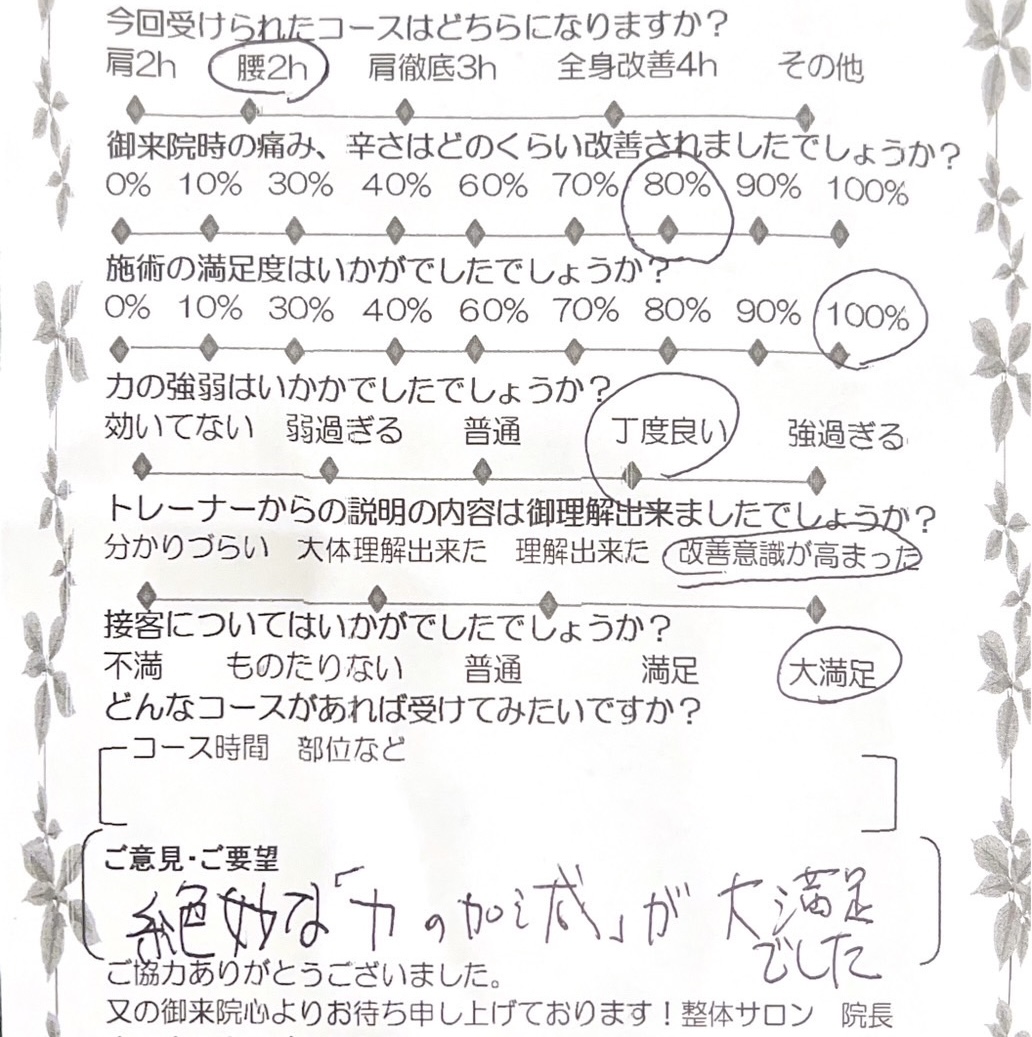 今回受けられたコースはどちらになりますか？
肩2h 腰2h 肩徹底3h 全身改善4h その他
御来院時の痛み、辛さはどのくらい改善されましたでしょうか？
0% 10% 30% 40% 60% 70% 80% 90% 100%
施術の満足度はいかがでしたでしょうか？
0% 10% 30% 40% 60% 70% 80% 90% 100%
力の強弱はいかかでしたでしょうか？
効いてない 弱過ぎる 普通 丁度良い 強過ぎる
トレーナーからの説明の内容は御理解出来ましたでしょうか？
分かりづらい 大体理解出来た 理解出来た 改善意識が高まった
接客についてはいかがでしたでしょうか？
不満 ものたりない 普通 満足 大満足
どんなコースがあれば受けてみたいですか？
コース時間 部位など
ご意見・ご要望
絶妙な「力の加減」が大満足
でした
ご協力ありがとうございました。
又の御来院心よりお待ち申し上げております！整体サロン 院長